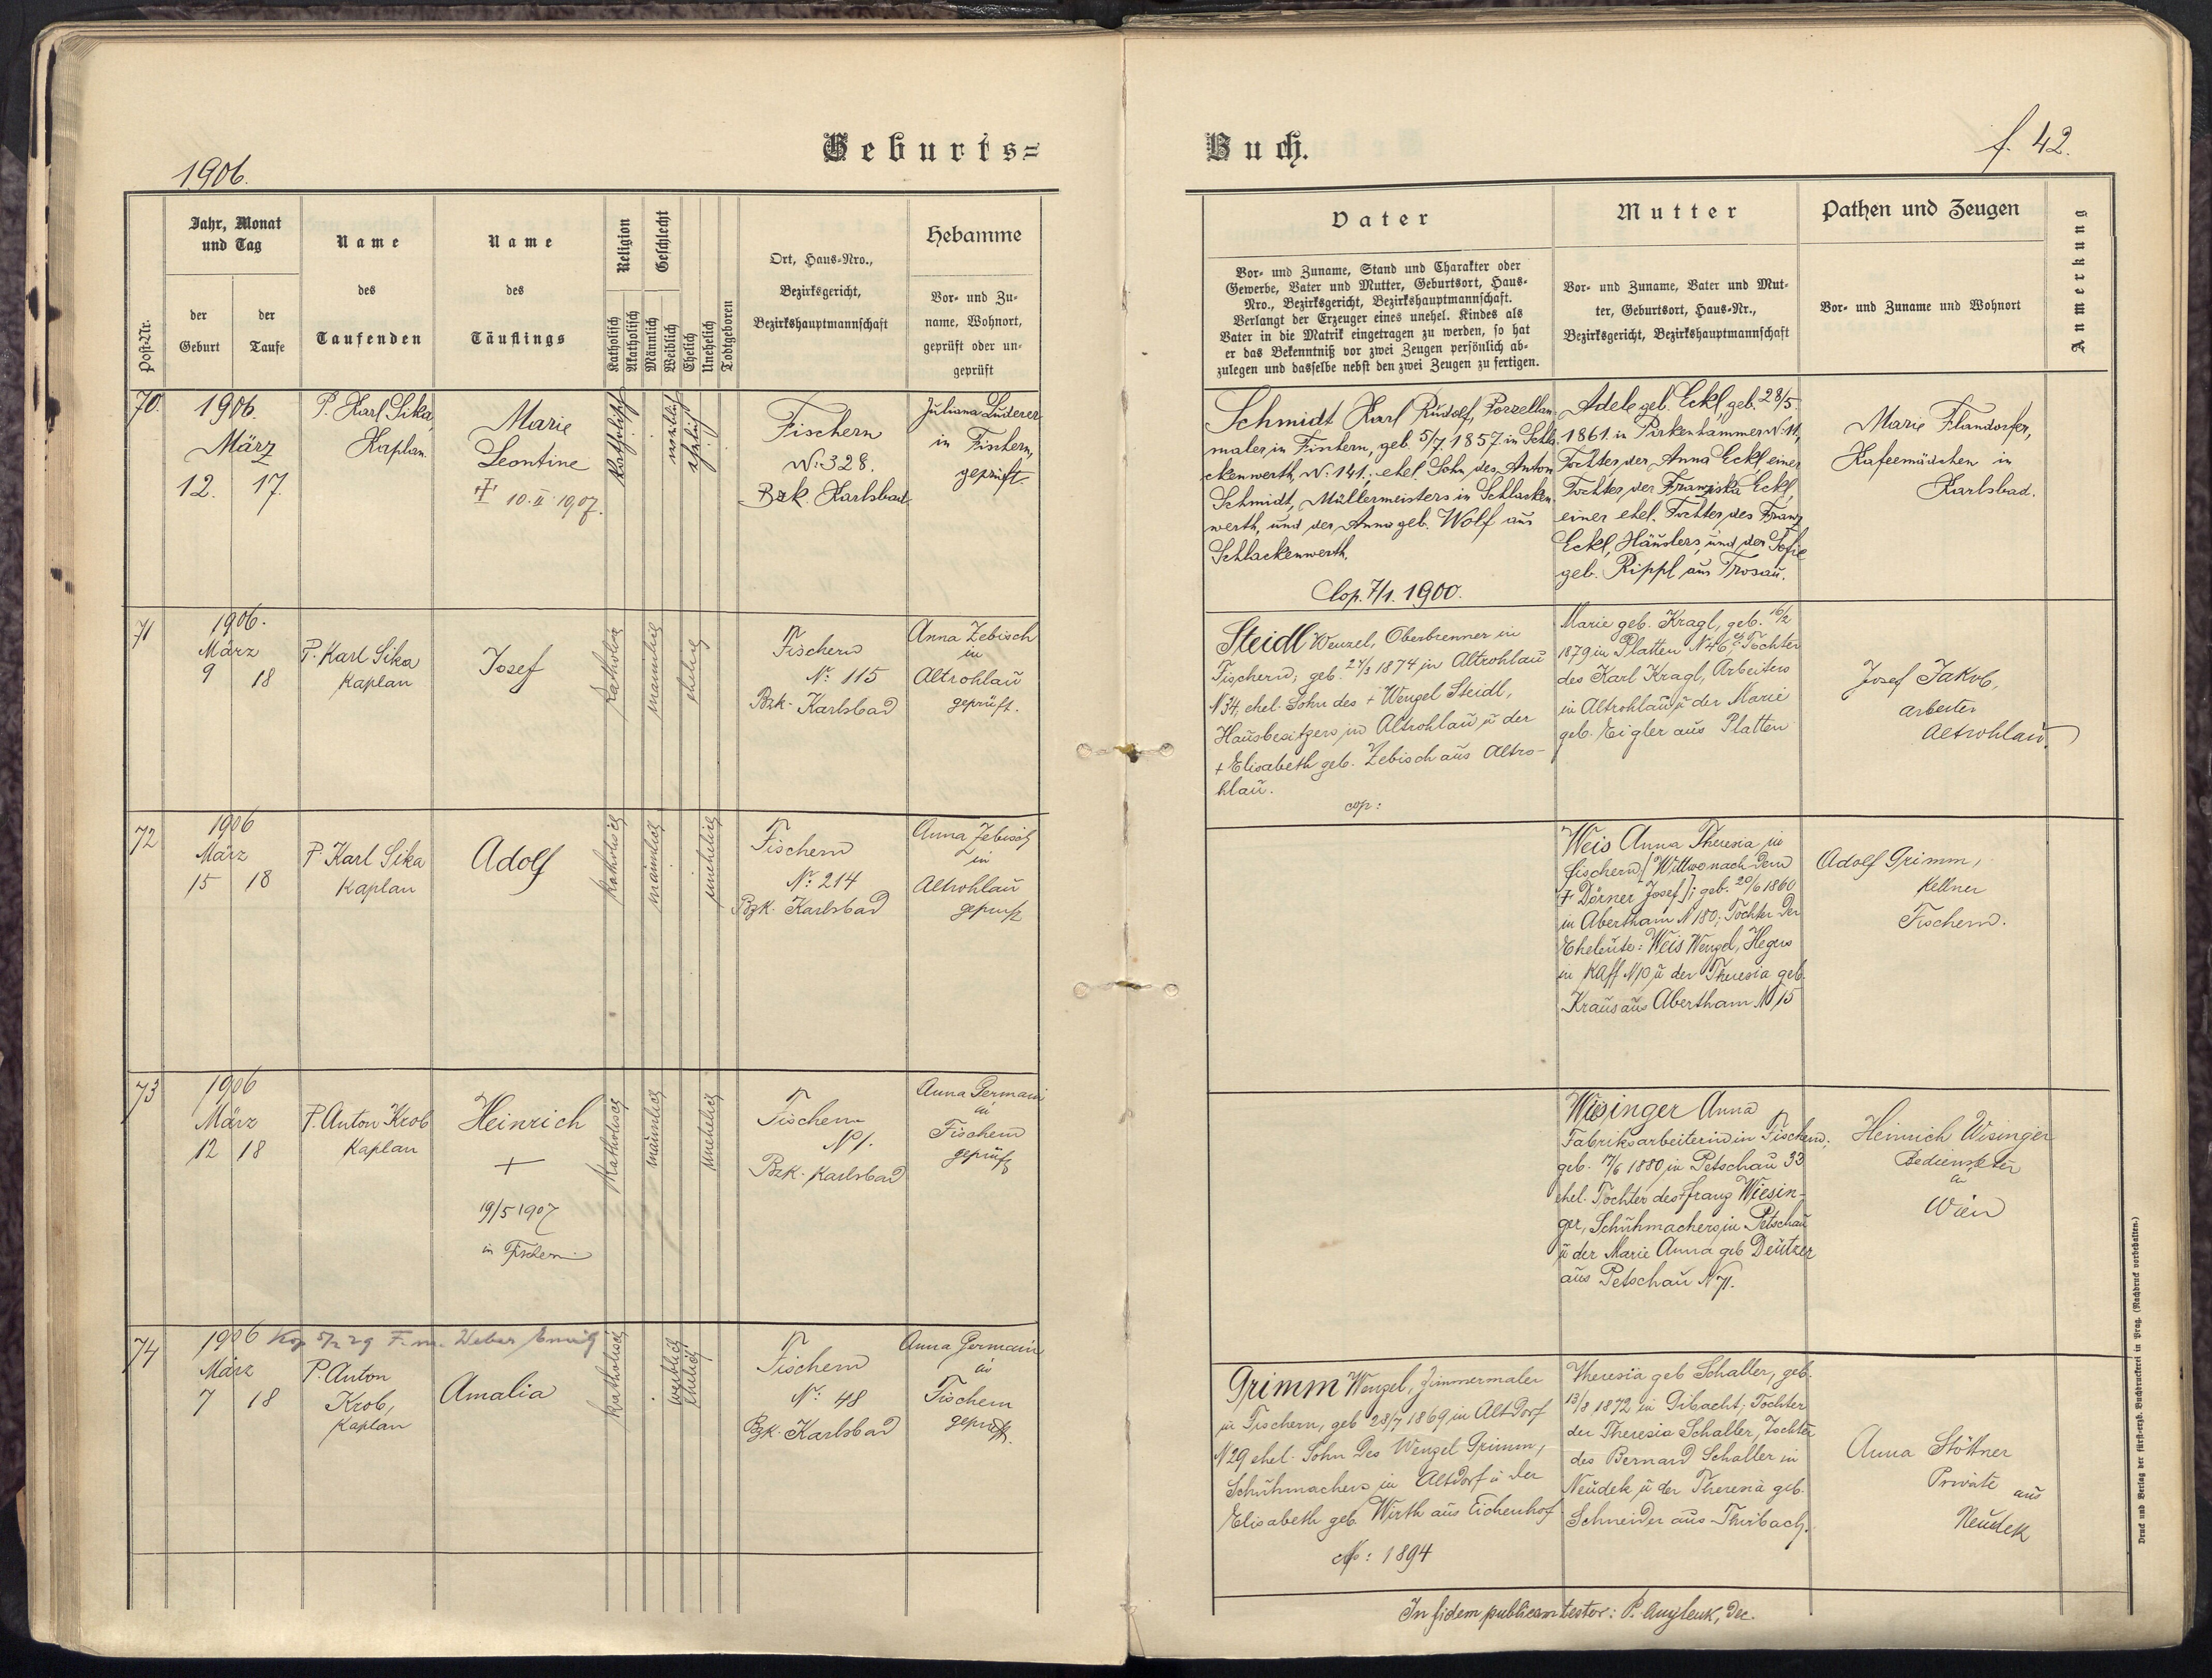 1906.
Geburts=
Buch.
f. 42.
Post-Nr.
Jahr, Monat
und Tag
der
Geburt
der
Taufe
Name
des
Taufenden
Name
des
Täuflings
Religion
Katholisch
Akatholisch
Geschlecht
Männlich
Weiblich
Ehelich
Unehelich
Todtgeboren
Ort, Haus-Nro.,
Bezirksgericht,
Bezirkshauptmannschaft
Hebamme
Vor- und Zu-
name, Wohnort,
geprüft oder un-
geprüft
Vater
Vor- und Zuname, Stand und Charakter oder
Gewerbe, Vater und Mutter, Geburtsort, Haus-
Nro., Bezirksgericht, Bezirkshauptmannschaft.
Verlangt der Erzeuger eines unehel. Kindes als
Vater in die Matrik eingetragen zu werden, so hat
er das Bekenntniß vor zwei Zeugen persönlich ab-
zulegen und dasselbe nebst den zwei Zeugen zu fertigen.
Mutter
Vor- und Zuname, Vater und Mut-
ter, Geburtsort, Haus-Nr.,
Bezirksgericht, Bezirkshauptmannschaft
Pathen und Zeugen
Vor- und Zuname und Wohnort
Anmerkung
70.
1906.
März
12. 17.
P. Karl Sika,
Kaplan.
Marie
Leontine
† 10. II. 1907.
katholisch
weiblich
ehelich
Fischern
N: 328.
Bzk. Karlsbad
Juliana Luderer
in Fischern,
geprüft.
Schmidt Karl Rudolf, Porzellan-
maler in Fischern, geb. 5/7 1857 in Schla-
ckenwerth, N: 141; ehel. Sohn des Anton
Schmidt, Müllermeisters in Schlacken-
werth, und der Anna geb. Wolf aus
Schlackenwerth.
Cop. 7/1. 1900.
Adele geb. Eckl, geb. 28/5.
1861. in Pirkenhammer N: 11,
Tochter der Anna Eckl, einer
Tochter der Franziska Eckl,
einer ehel. Tochter des Franz
Eckl, Häuslers, und der Sofie
geb. Rippl aus Trosau.
Marie Flandorfer,
Kafeemädchen in
Karlsbad.
71
1906.
März
9 18
P. Karl Sika
Kaplan
Josef
katholisch
männlich
ehelich
Fischern
N: 115
Bzk. Karlsbad
Anna Zebisch
in
Altrohlau
geprüft.
Steidl Wenzel, Oberbrenner in
Fischern; geb. 27/3 1874 in Altrohlau
N 34, ehel. Sohn des † Wenzel Steidl,
Hausbesitzers in Altrohlau u der
† Elisabeth geb. Zebisch aus Altro-
hlau.
cop:
Marie geb. Kragl, geb. 16/2
1879 in Platten N 46; Tochter
des Karl Kragl, Arbeiters
in Altrohlau u der Marie
geb. Eigler aus Platten
Josef Jakob,
arbeiter
Altrohlau.
72
1906
März
15 18
P. Karl Sika
Kaplan
Adolf
katholisch
männlich
unehelich
Fischern
N: 214
Bzk. Karlsbad
Anna Zebisch
in
Altrohlau
geprüft
Weis Anna Theresia in
Fischern [Wittwe nach dem
† Dörner Josef]; geb. 20/6 1860
in Abertham N 180; Tochter der
Eheleute: Weis Wenzel, Hegers
in Kaff N 10, u der Theresia geb.
Kraus aus Abertham N 15
Adolf Grimm,
Kellner
Fischern.
73
1906
März
12 18
P. Anton Krob
Kaplan
Heinrich
+
19/5 1907
in Fischern
katholisch
männlich
unehelich
Fischern
N 1.
Bzk. Karlsbad
Anna Germain
in
Fischern
geprüft
Wisinger Anna
Fabriksarbeiterin in Fischern;
geb. 17/6 1880 in Petschau 33
ehel. Tochter des † Franz Wiesin-
ger, Schuhmachers in Petschau
u der Marie Anna geb Deutzer
aus Petschau N 71.
Heinrich Wisinger
Bediensteter
in
Wien
74
1906
Weber
März
7 18
P. Anton
Krob,
Kaplan
Amalia
katholisch
weiblich
ehelich
Fischern
N: 48
Bzk. Karlsbad
Anna Germain
in
Fischern
geprüft.
Grimm Wenzel, Zimmermaler
in Fischern, geb 28/7 1869 in Altdorf
N 29 ehel. Sohn des Wenzel Grimm,
Schuhmachers in Altdorf u der
Elisabeth geb. Wirth aus Eichenhof
cop: 1894
Theresia geb Schaller, geb.
13/8 1872 in Tochter
der Theresia Schaller, Tochter
des Bernard Schaller in
Neudek u der Theresia geb.
Schneider aus Thierbach.
Anna Stöttner
Private aus
Neudek
In fidem publicam testor: P. Dec.
Druck und Verlag der fürst-erzb. Buchdruckerei in Prag. (Nachdruck vorbehalten.)